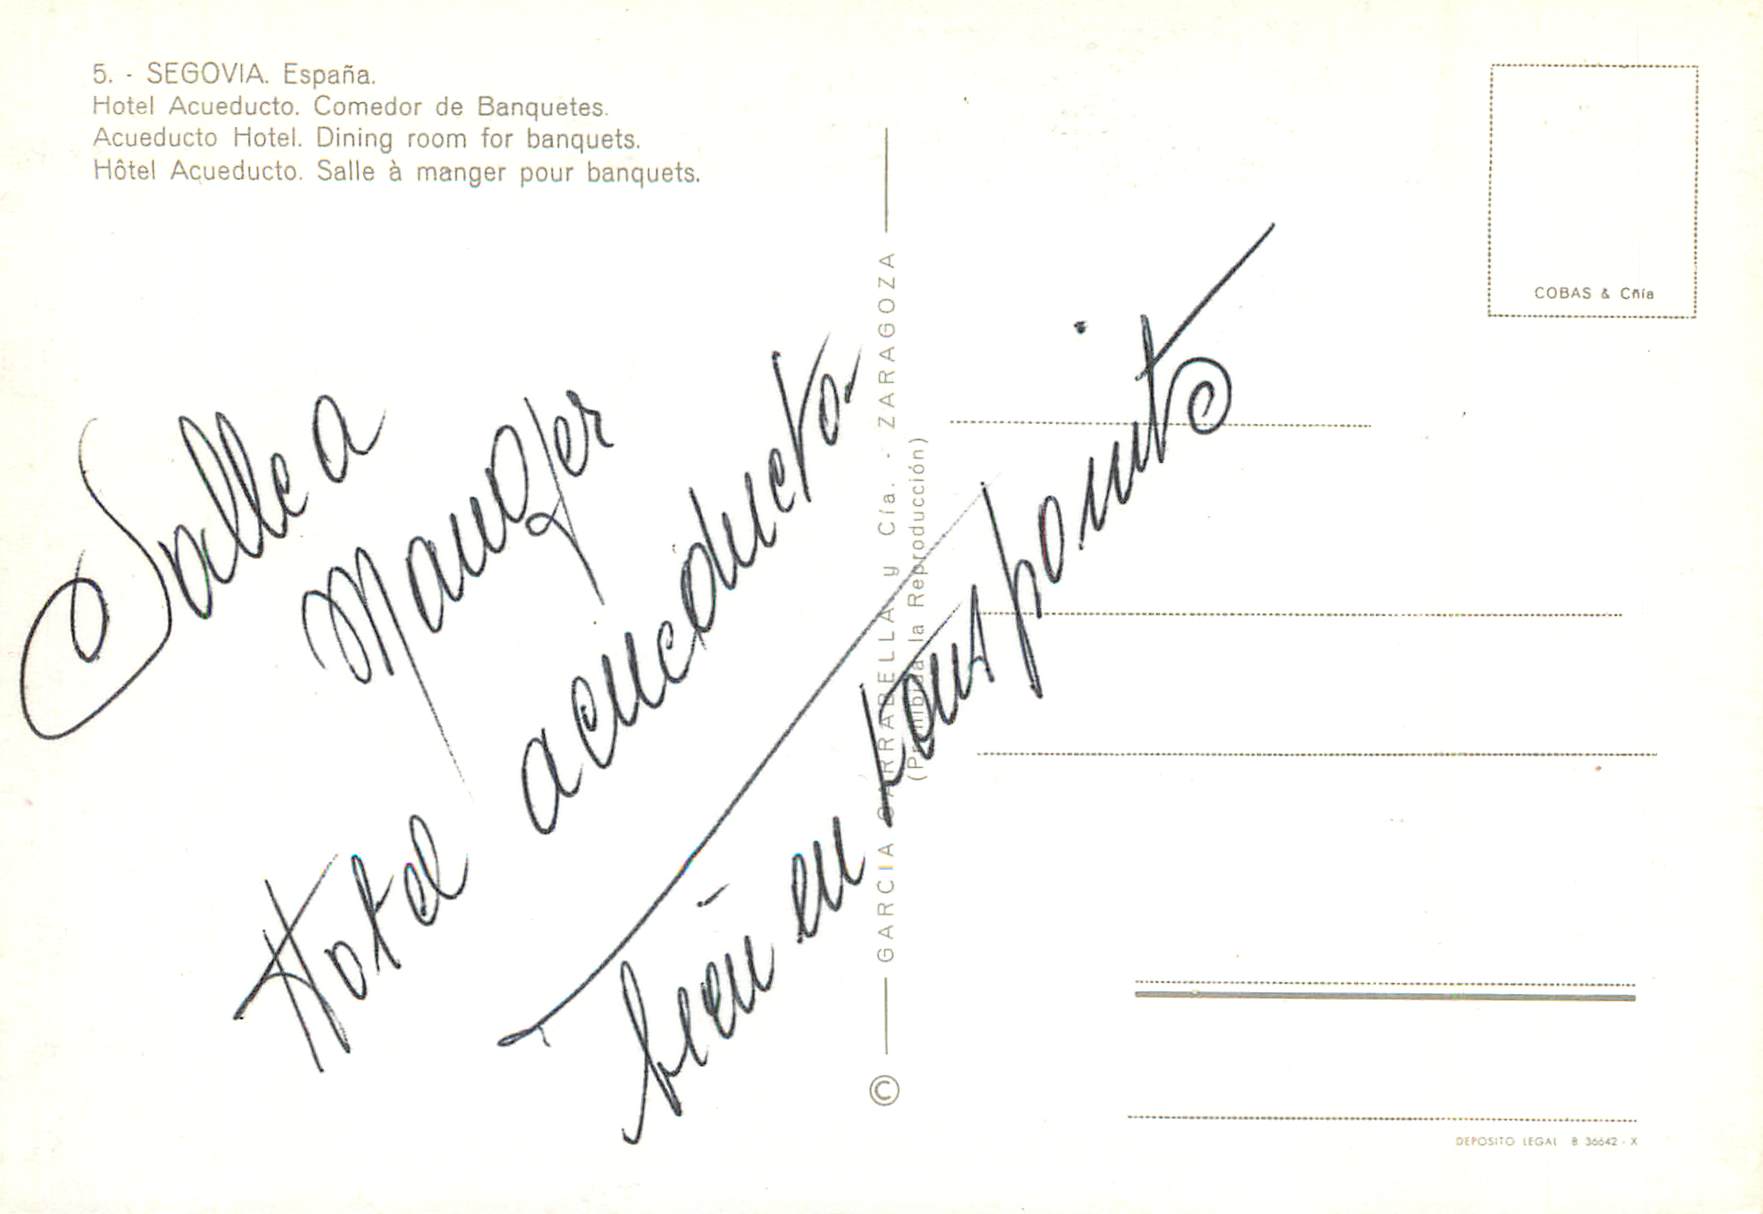 5. - SEGOVIA. España.
Hotel Acueducto. Comedor de Banquetes.
Acueducto Hotel. Dining room for banquets.
Hôtel Acueducto. Salle à manger pour banquets.
COBAS & Cñía
© GARCIA GARRABELLA y Cía. - ZARAGOZA
(Prohibida la Reproducción)
Salle a
Manger
Hotel acueducto
bien en tous points
DEPOSITO LEGAL B 36642 - X